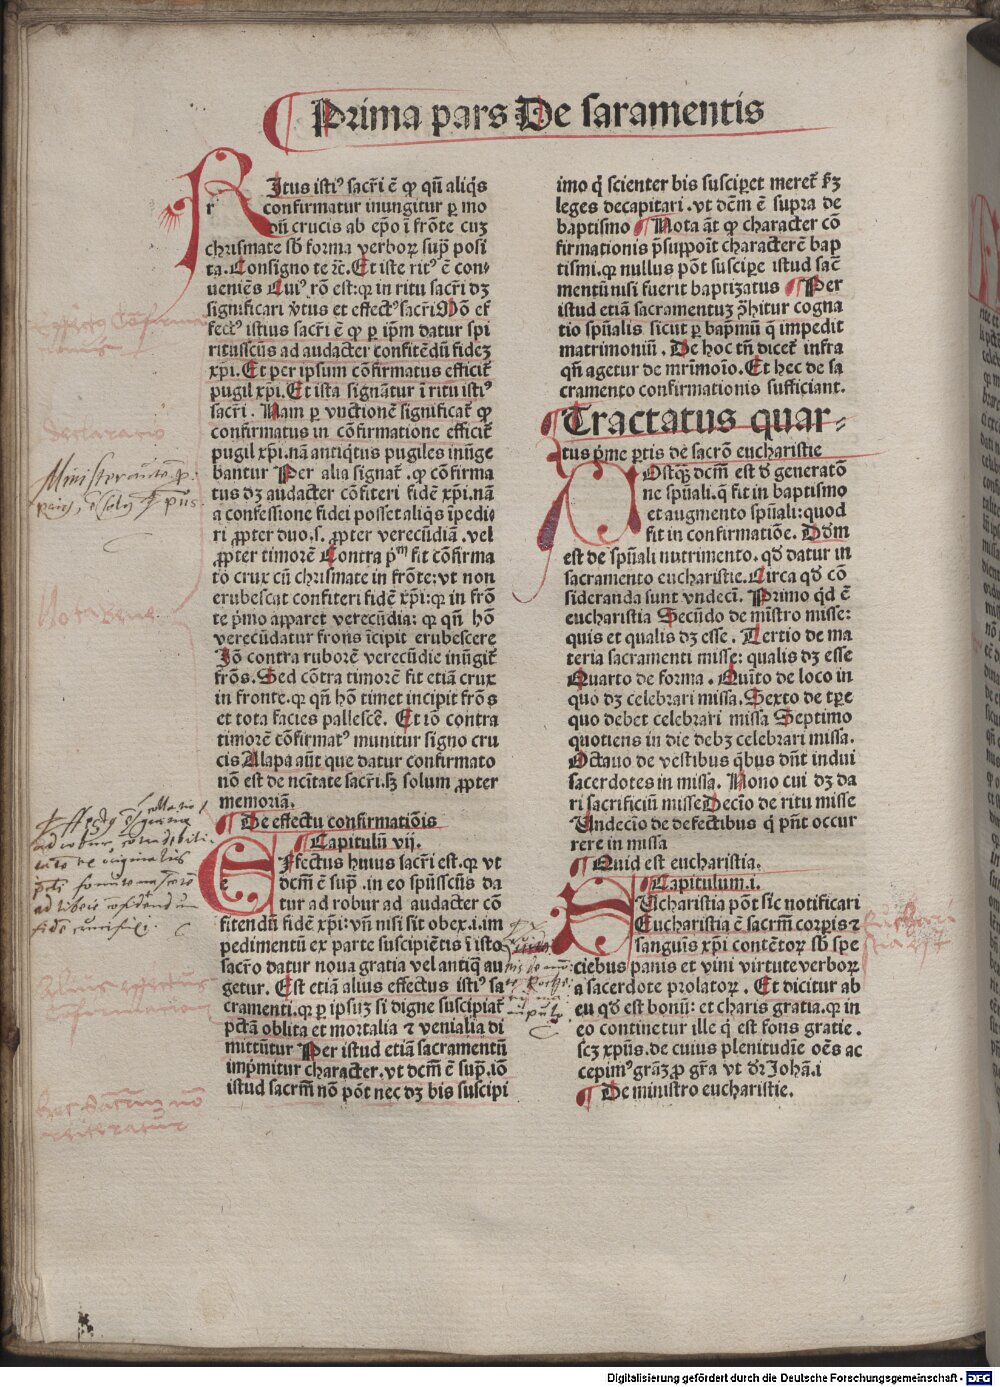 Prima pars De saramentis
RItus istiꝰ sacr̄i ē ꝙ qn̄ aliq̇s
r confirmatur inungitur ꝑ mo
dū crucis ab ep̄o ī frōte cuꝫ
chrismate sb̄ forma verboꝝ sup̄ posi
ta. Consigno te ⁊c̄. Et iste ritꝰ ē con-
ueniēs Cuiꝰ rō est: qꝛ in ritu sacr̄i dꝫ
significari v̄tus et effectꝰ sacr̄i Mō ef
fectꝰ istius sacr̄i ē ꝙ ꝑ ip̄m datur spi
ritusscūs ad audacter confitēdū fideꝫ
xp̄i. Et per ipsum cōfirmatus efficit᷑
pugil xp̄i. Et ista signātur ī ritu istiꝰ
sacr̄i. Nam ꝑ vnctionē significat᷑ ꝙ
confirmatus in cōfirmatione efficit᷑
pugil xp̄i. nā antiqitus pugiles inūge
bantur Per alia signat᷑. ꝙ cōfirma
tus dꝫ audacter cōfiteri fidē xp̄i. nā
a confessione fidei posset aliq̇s īpedi-
ri ꝓpter duo. s. ꝓpter verecūdiā. vel
ꝓpter timorē Contra pͫ fit cōfirma
tō crux cū chrismate in frōte: vt non
erubescat confiteri fidē xp̄i: qꝛ in frō
te p̄mo apparet verecūdia: qꝛ qn̄ hō
verecūdatur frons īcipit erubescere
Iō contra ruborē verecūdie inūgit᷑
frōs. Sed cōtra timorē fit etiā crux
in fronte. qꝛ qn̄ hō timet incipit frōs
et tota facies pallescē. Et iō contra
timorē cōfirmatꝰ munitur signo cru
cis Alapa aūt que datur confirmato
nō est de ncītate sacr̄i. sꝫ solum ꝓpter
memoriā.
De effectu confirmatiōis
Capitulū vij.
EFfectus huius sacr̄i est. ꝙ vt
e dcm̄ ē sup̄. in eo spūsscūs da
tur ad robur ad audacter cō
fitendū fidē xp̄i: vn̄ nisi sit obex. i. im
pedimentū ex parte suscipiētis ī isto
sacr̄o datur noua gratia vel antiq̄ au
getur. Est etiā alius effectus istiꝰ sa
cramenti. qꝛ ꝑ ipsuꝫ si digne suscipiat᷑
pctā oblita et mortalia ⁊ venialia di
mittūtur Per istud etiā sacramentū
imp̄mitur character. vt dcm̄ ē sup̄. iō
istud sacrm̄ nō pōt nec dꝫ bis suscipi
imo q̇ scienter bis susciꝑet meret᷑ ẜꝫ
leges decapitari. vt dcm̄ ē supra de
baptismo Nota āt ꝙ character cō
firmationis p̄suppōit characterē bap
tismi. qꝛ nullus pōt suscipe istud sac̄
mentū nisi fuerit baptizatus Per
istud etiā sacramentuꝫ ꝯ̄hitur cogna
tio spūalis sicut ꝑ bap̄mū q̄ impedit
matrimoniū. De hoc tn̄ dicet᷑ infra
qn̄ agetur de mr̄imoīo. Et hec de sa
cramento confirmationis sufficiant.
Tractatus quar-
tus p̄me ꝑtis de sacr̄o eucharistie
POstqꝫ dcm̄ est ď generatō
ne spūali. q̄ fit in baptismo
et augmento spūali: quod
fit in confirmatiōe. Dd̓m
est de spūali nutrimento. qd̓ datur in
sacramento eucharistie. Circa qd̓ cō
sideranda sunt vndecī. Primo qd̓ ē
eucharistia Secūdo de mīstro misse:
quis et qualis dꝫ esse. Tertio de ma
teria sacramenti misse: qualis dꝫ esse
Quarto de forma. Quīto de loco in
quo dꝫ celebrari missa. Sexto de tꝑe
quo debet celebrari missa Septimo
quotiens in die debꝫ celebrari missa.
Octauo de vestibus q̇bus dn̄t indui
sacerdotes in missa. Nono cui dꝫ da
ri sacrificiū misse Decīo de ritu misse
Undecīo de defectibus q̇ pn̄t occur
rere in missa
Quid est eucharistia.
Capitulum. i.
EUcharistia pōt sic notificari
Eucharistia ē sacrm̄ corpīs ⁊
sanguīs xp̄i contētoꝝ sb̄ spe
ciebus panis et vini virtute verboꝝ
a sacerdote prolatoꝝ. Et dicitur ab
eu qd̓ est bonū: et charis gratia. qꝛ in
eo continetur ille q̇ est fons gratie.
scꝫ xp̄us. de cuius plenitudīe oēs ac
cepimꝰ grāꝫ ꝓ gr̄a vt dr̄ Johā. i
De ministro eucharistie.
declaratio
Nota bene
Digitalisierung gefördert durch die Deutsche Forschungsgemeinschaft - DFG